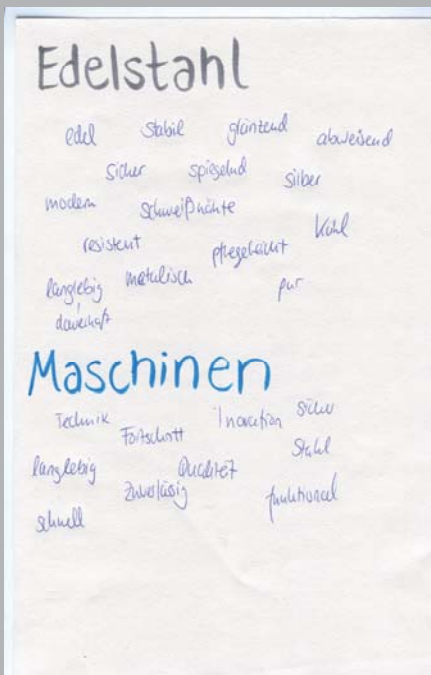 Edelstahl
edel stabil glänzend abweisend
sicher spiegelnd silber
modern Schweißnähte Kühl
resistent pflegeleicht
langlebig metalisch pur
dauerhaft
Maschinen
Technik Fortschritt Inovation sicher
Stahl
langlebig Qualität
Zuverlässig funktional
schnell